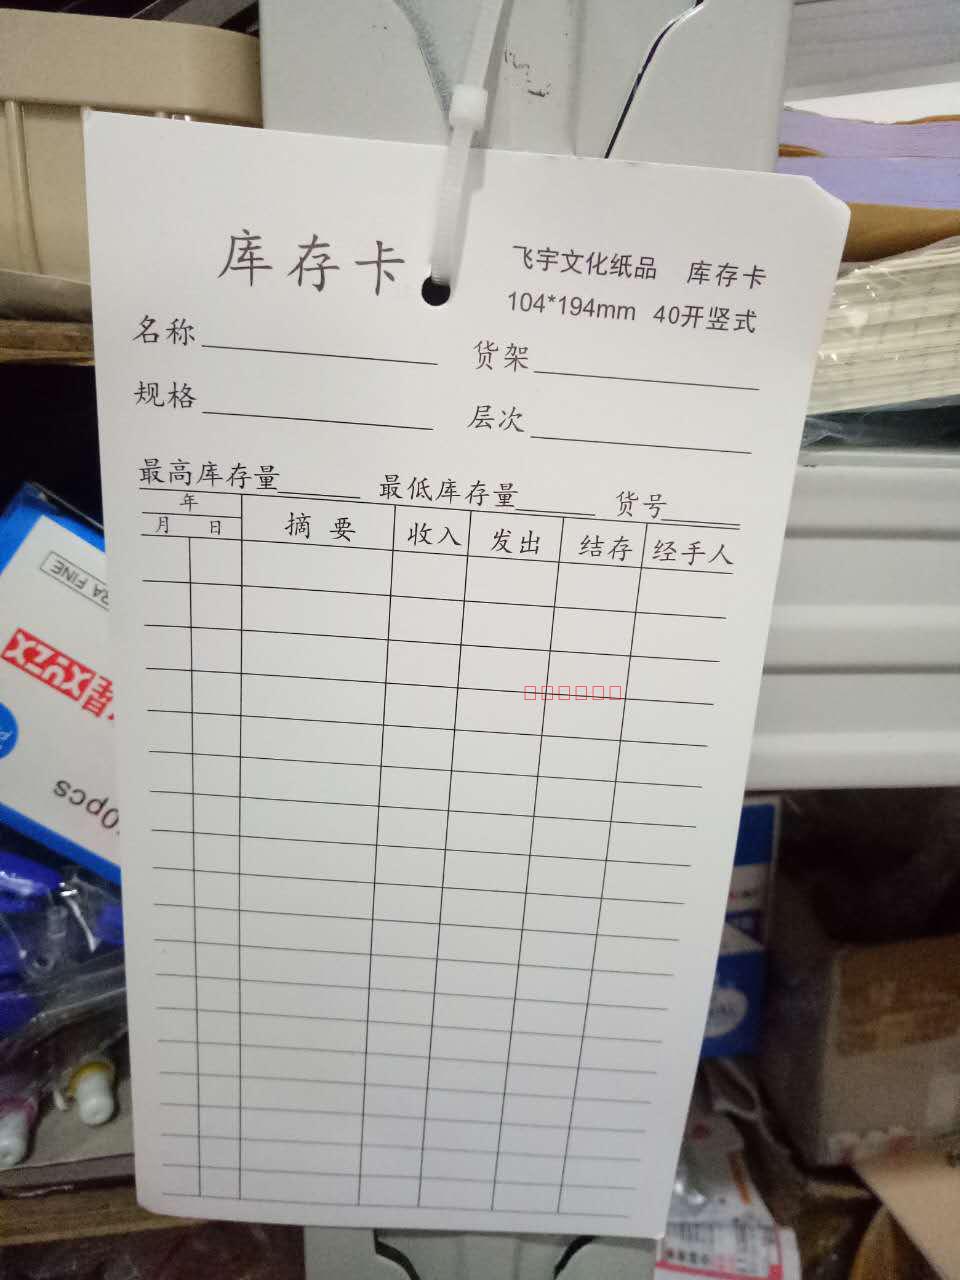 库存卡
飞宇文化纸品 库存卡
104*194mm 40开竖式
名称
货架
规格
层次
最高库存量 最低库存量 货号
年
月 日
摘要 收入 发出 结存 经手人
RA FINE
0pcs